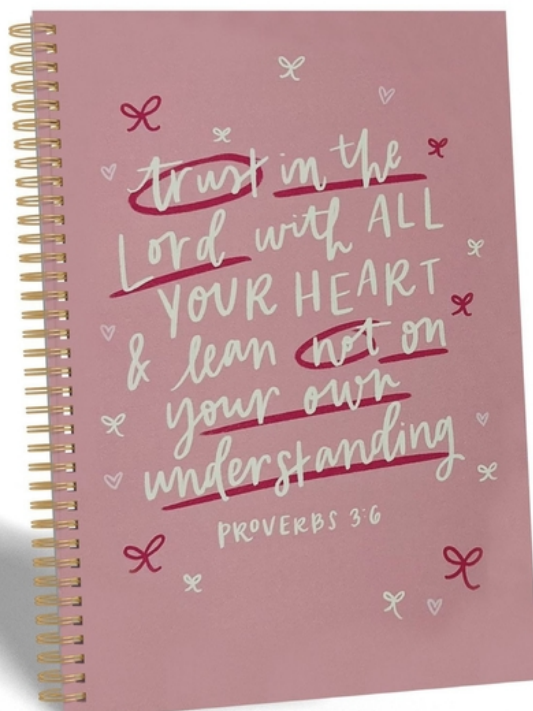 trust in the
Lord with ALL
YOUR HEART
& lean not on
your own
understanding
PROVERBS 3:6